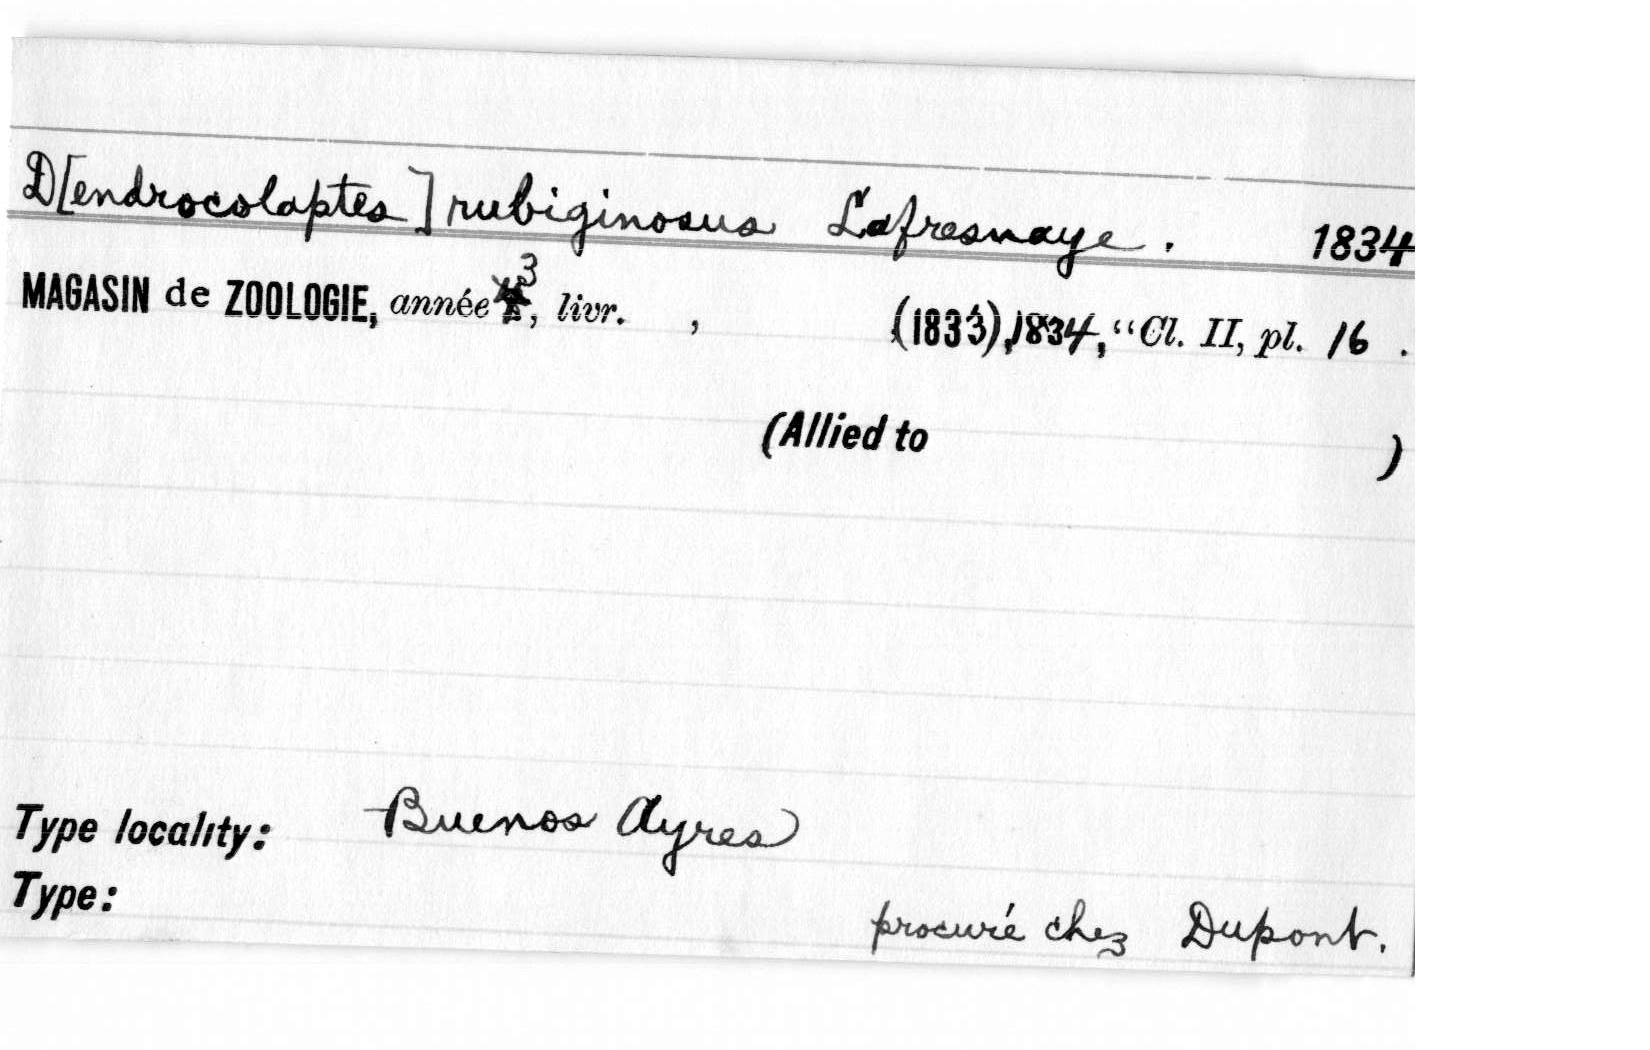 D[endrocolaptes] rubiginosus Lafresnaye. 1834
MAGASIN de ZOOLOGIE, année 3, livr. , (1833), 1834, "Cl. II, pl. 16 .
(Allied to )
Type locality: Buenos Ayres
Type:
procuré chez Dupont.